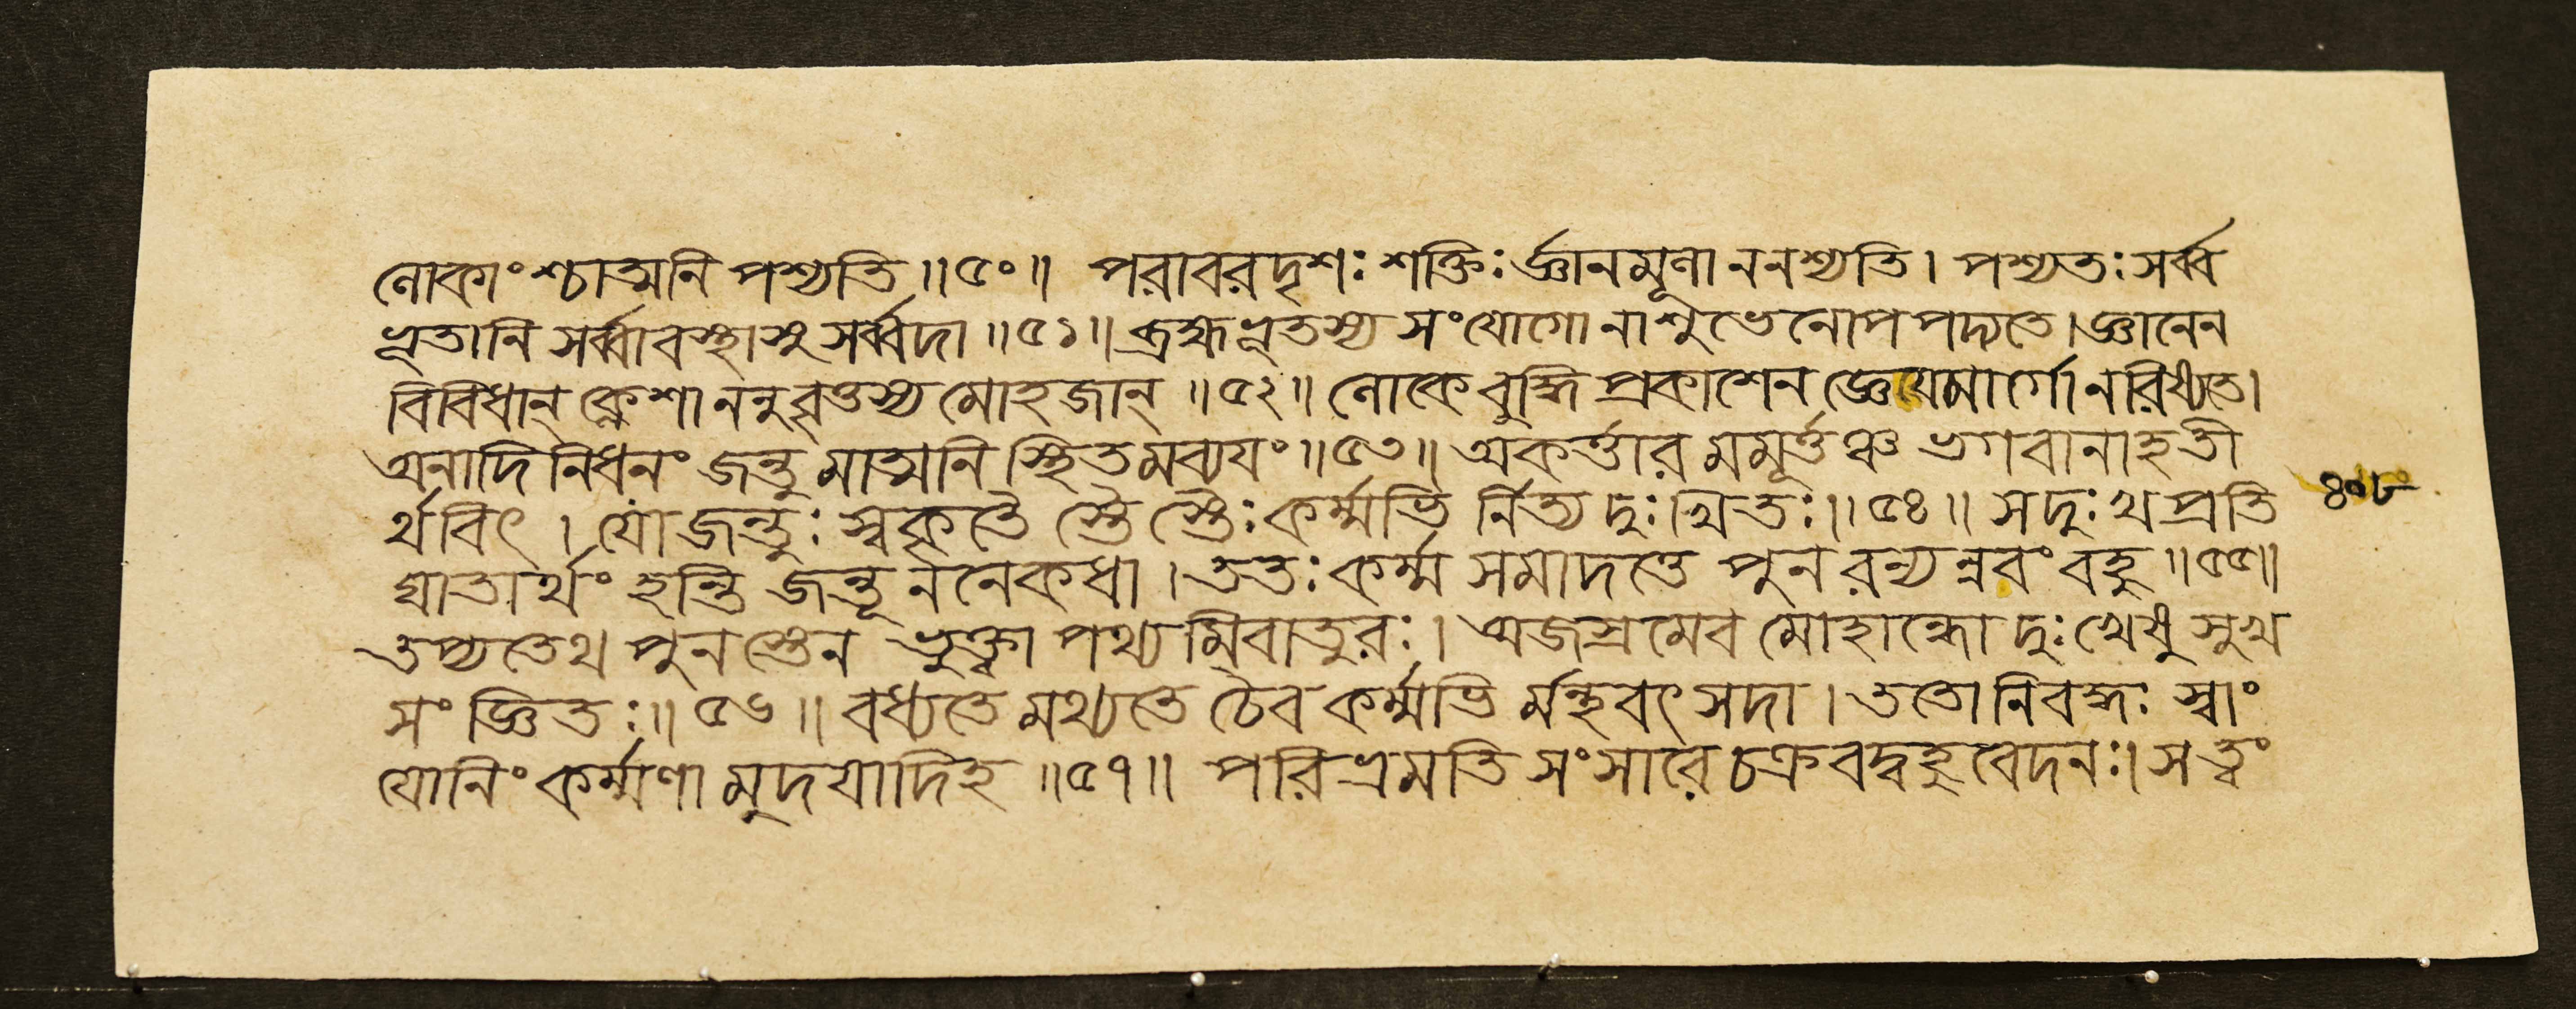 লোকাংশ্চাত্মনি পশ্যতি ॥৫০॥ পরাবরদৃশঃ শক্তিঃর্জ্ঞানমূলা ননশ্যতি। পশ্যতঃ সর্ব্ব
ভূতানি সর্ব্বাবস্থাসু সর্ব্বদা ॥৫১॥ ব্রহ্মভূতস্য সংযোগো নাশুভেনোপপদ্যতে। জ্ঞানেন
বিবিধান্ ক্লেশাননুবৃত্তস্য মোহজান্ ॥৫২॥ লোকে বুদ্ধি প্রকাশেন জ্ঞেয়মার্গো নরিষ্যতে।
অনাদি নিধনং জন্তুমাত্মনি স্থিতমব্যয়ং ॥৫৩॥ অকর্ত্তারমমূর্ত্তঞ্চ ভগবানাহতী
র্থবিৎ । যো জন্তুঃ স্বকৃতৈ স্তৈ স্তৈঃ কর্ম্মভি র্নিত্য দুঃখিতঃ ॥৫৪॥ সদুঃখ প্রতি
ঘাতার্থং হন্তি জন্তূননেকধা । ততঃ কর্ম্ম সমাদত্তে পুনরন্যন্নবং বহু ॥৫৫॥
তপ্যতেথ পুনস্তেন ভুক্ত্বা পথ্যমিবাতুরঃ । অজস্রমেব মোহান্ধো দুঃখেষু সুখ
সংজ্ঞিতঃ ॥ ৫৬ ॥ বধ্যতে মথ্যতে চৈব কর্ম্মভি র্মন্থবৎ সদা । ততো নিবদ্ধঃ স্বাং
যোনিং কর্ম্মণামুদয়াদিহ ॥৫৭॥ পরিভ্রমতি সংসারে চক্রবদ্বহু বেদনঃ। সত্ত্বং
৪০৮